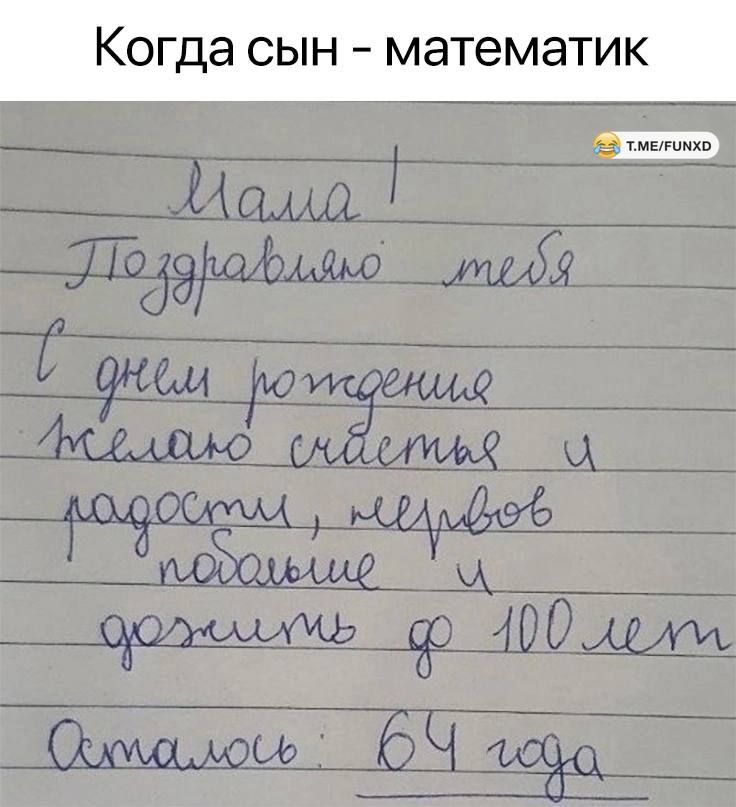 Когда сын - математик
T.ME/FUNXD
Мама!
Поздравляю тебя
С днем рождения
желаю счастья и
радости, нервов
побольше и
дожить до 100 лет
Осталось: 64 года